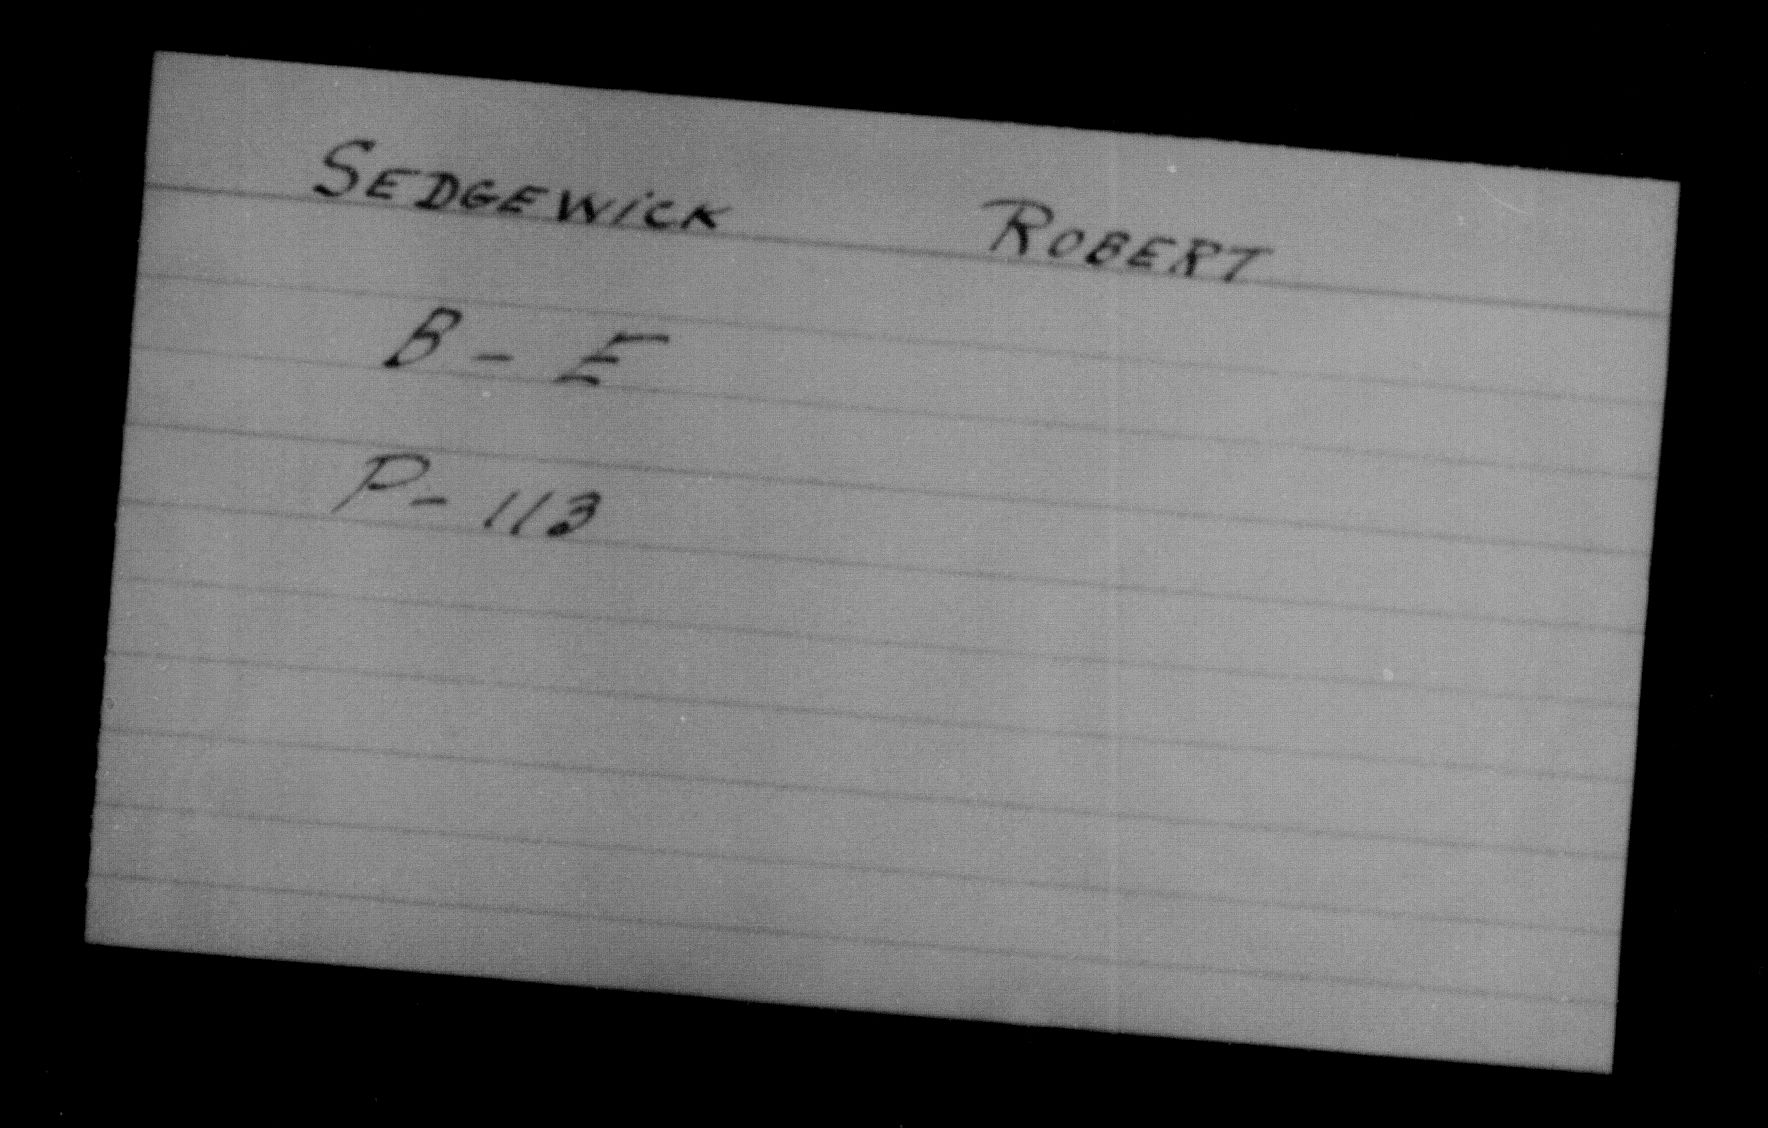 SEDGEWICK ROBERT
B - E
P - 113